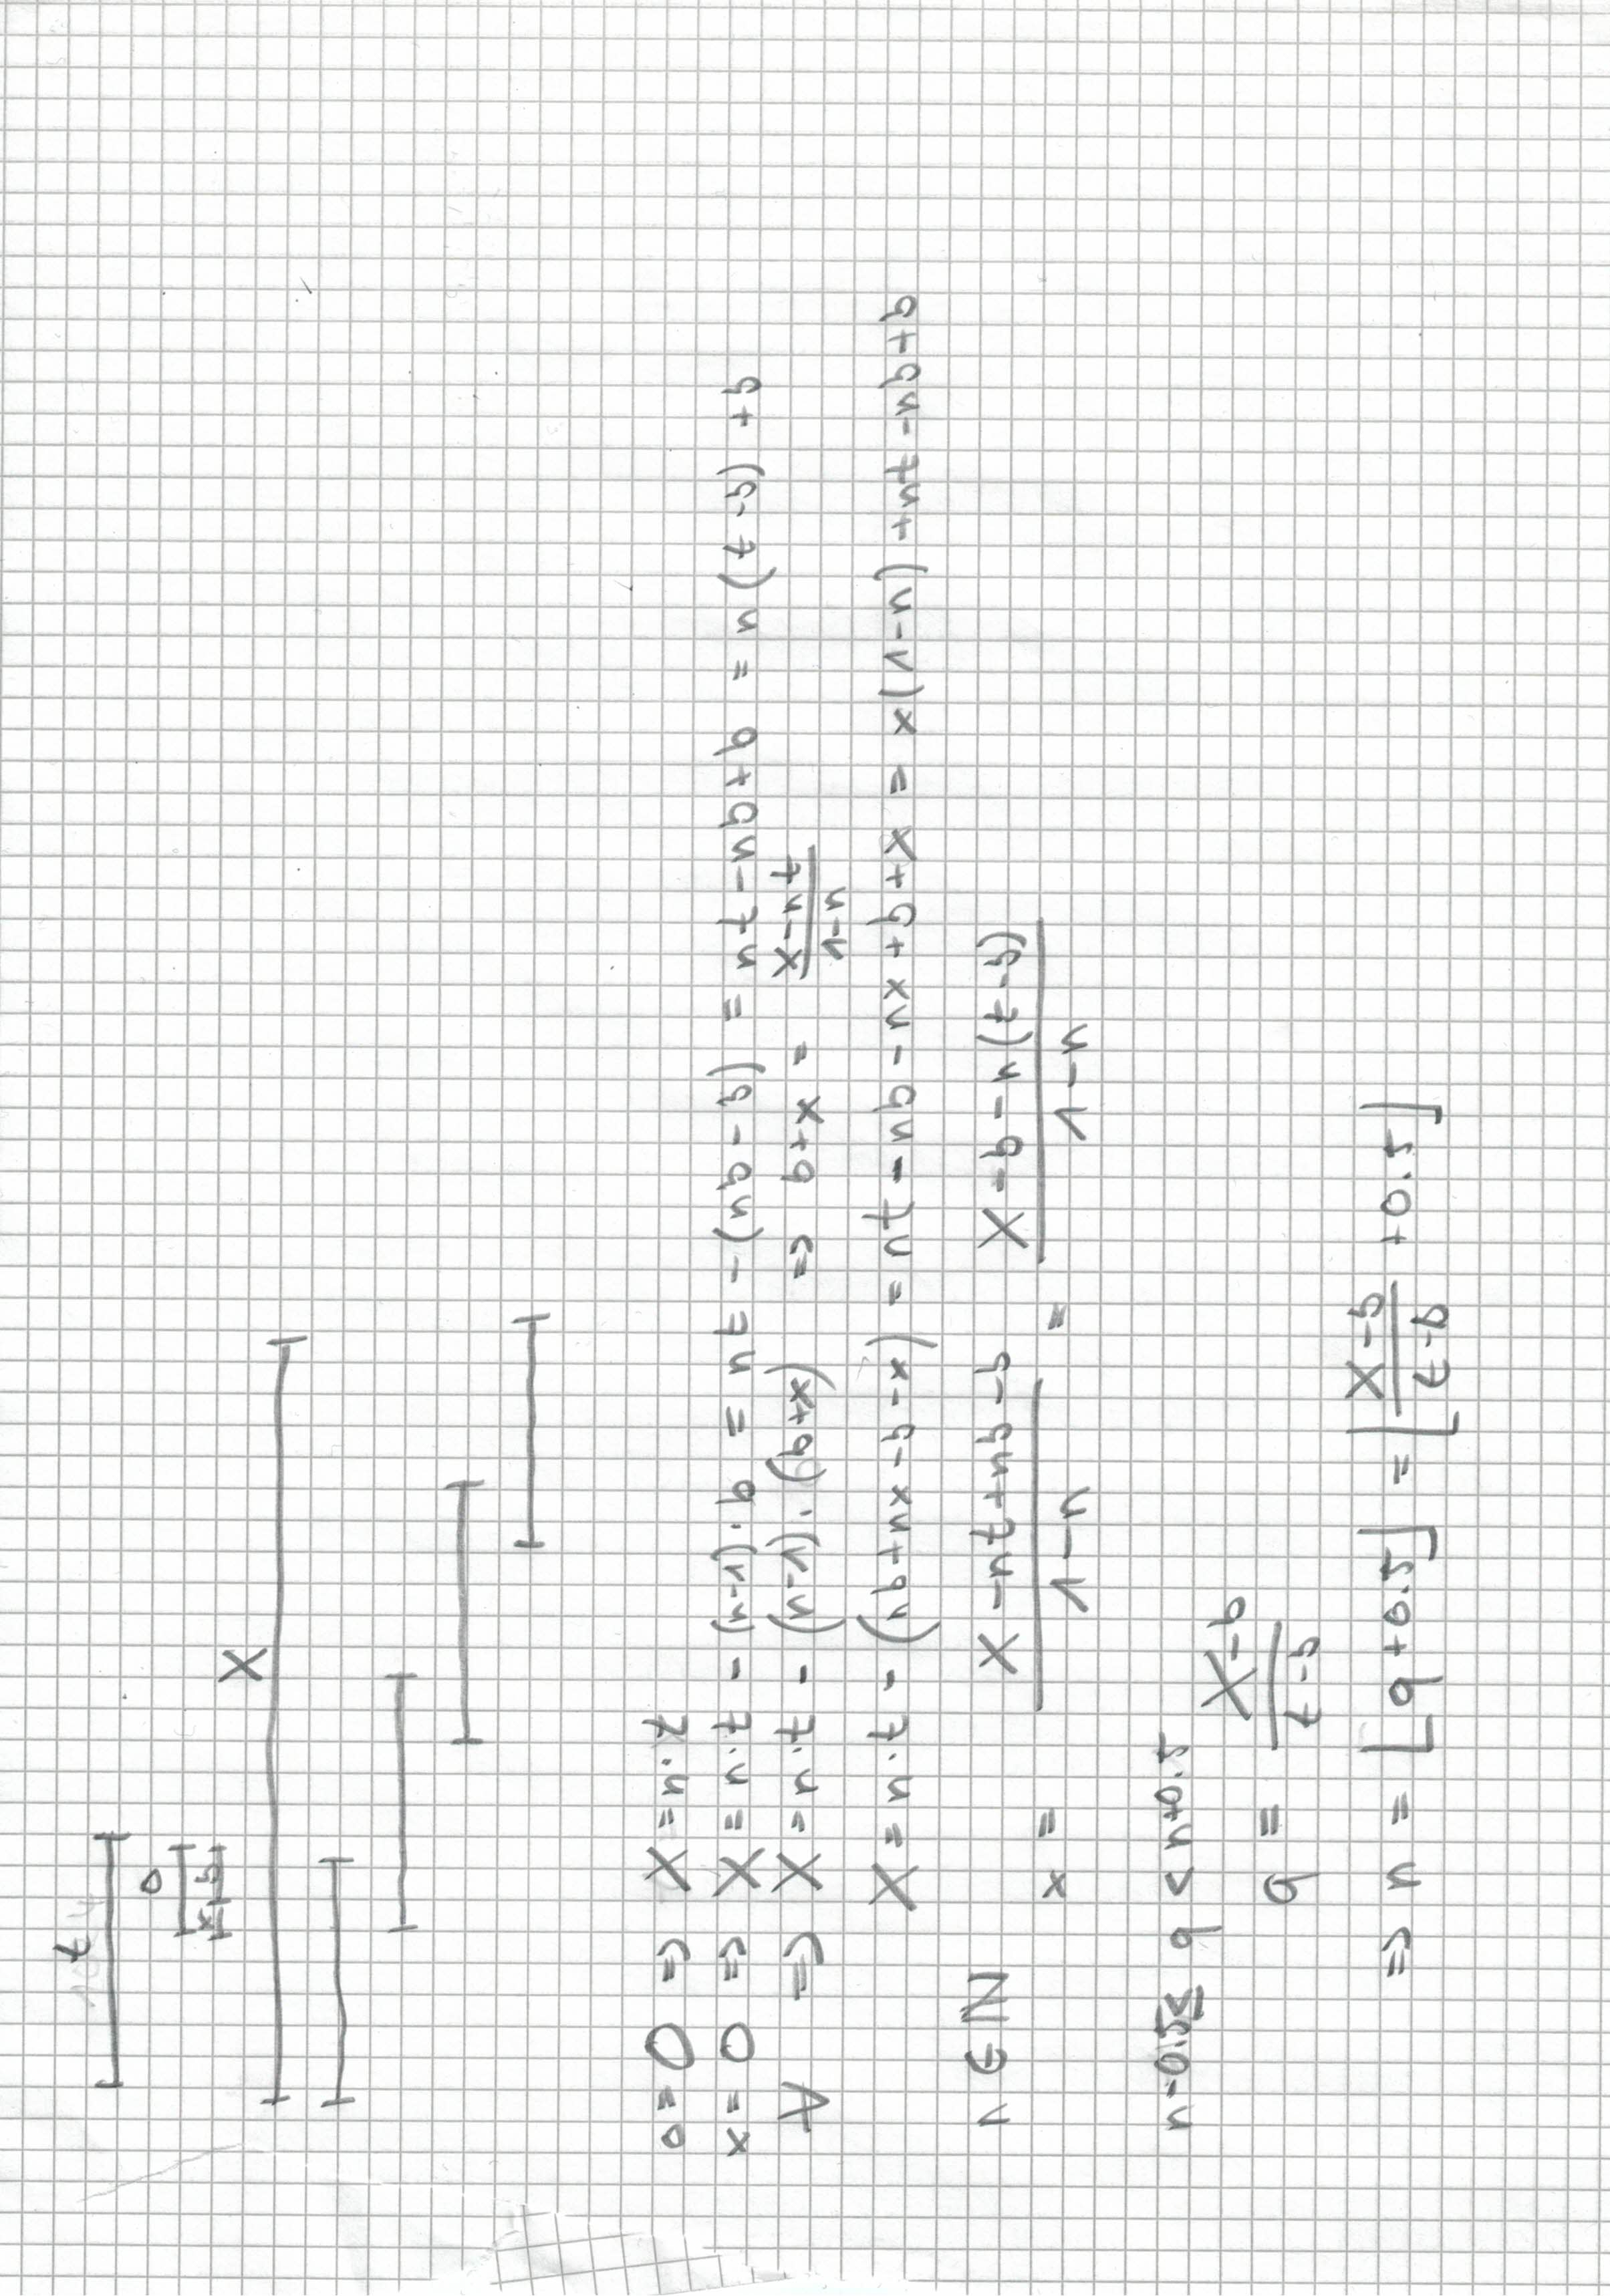 t
o
x b
X
o = 0 => X = n · t
x = 0 => X = n · t - (n-1) · b = nt - (nb - b) = nt - nb + b = n(t-b) + b
∀ => X = n · t - (n-1) · (b+x) => b+x = (X-nt)/(1-n)
X = n · t - (nb+nx-b-x) = nt - nb - nx + b + x = x(1-n) + nt - nb + b
n ∈ ℕ
x = (X - nt + nb - b)/(1-n) = (X - b - n(t-b))/(1-n)
n-0.5 ≤ q < n+0.5
q = (X-b)/(t-b)
=> n = ⌊q+0.5⌋ = ⌊(X-b)/(t-b) + 0.5⌋